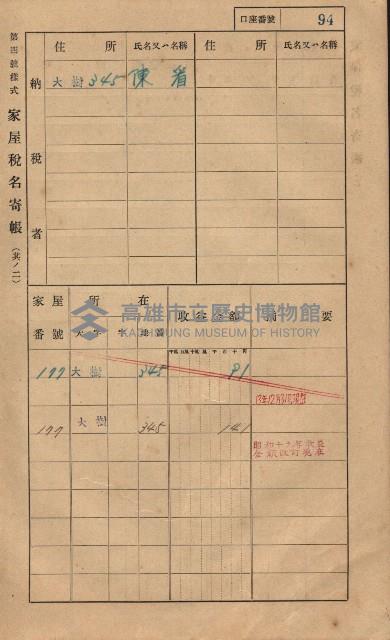 口座番號 94
第四號樣式 家屋稅名寄帳(其ノ二)
納稅者
住所 氏名又ハ名稱 住所 氏名又ハ名稱
大樹 345 陳看
家屋番號 所在 收益金額 摘要
大字 字 地番
177 大樹 345 91
177 大樹 345 141
高雄市立歷史博物館
KAOHSIUNG MUSEUM OF HISTORY